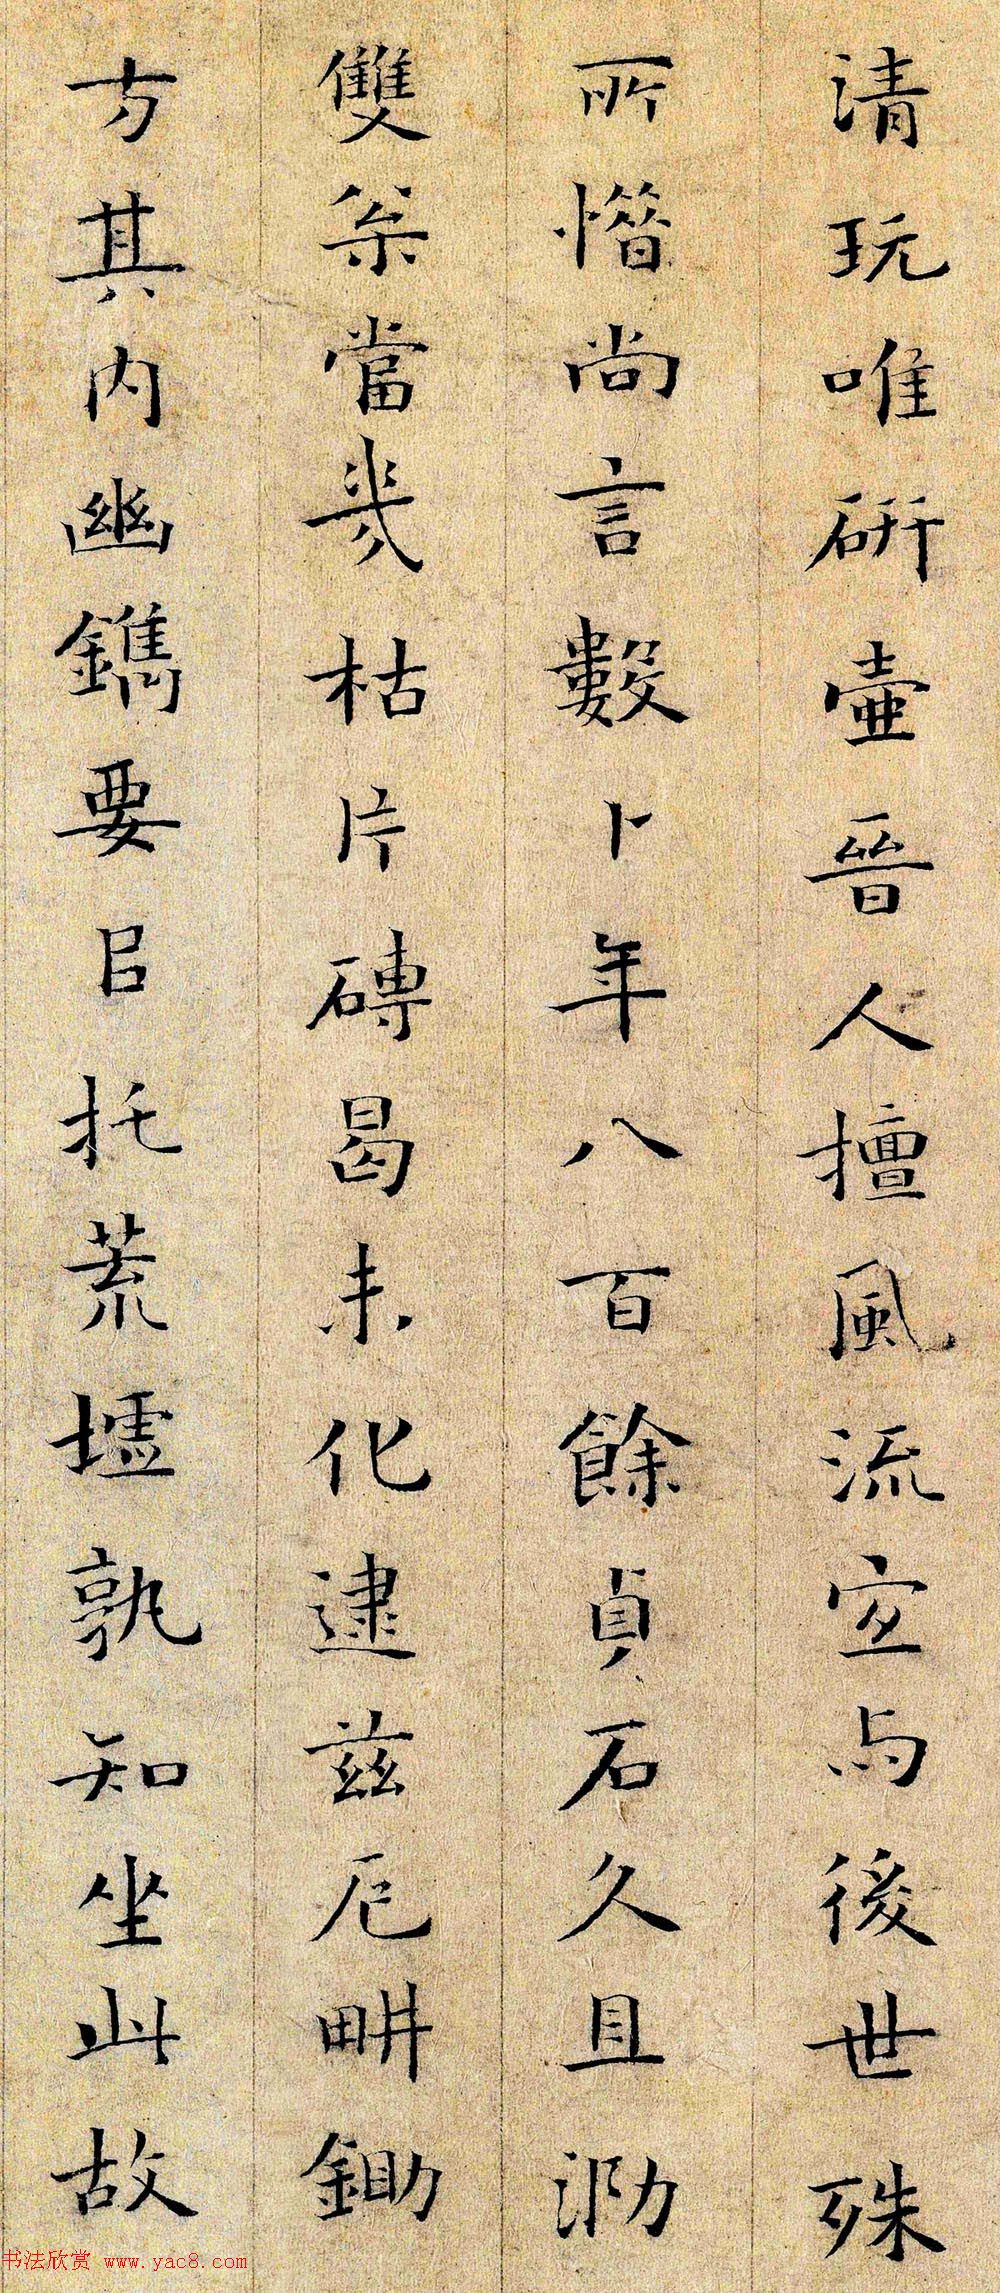 清玩唯研壷晉人擅風流宜与後世殊
所憯尚言數卜年八百餘貞石久且泐
雙亲當幾枯片磚曷未化逮兹厄畊鋤
方其内幽鐫要㠯托荒墟孰知坐此故
书法欣赏 www.yac8.com